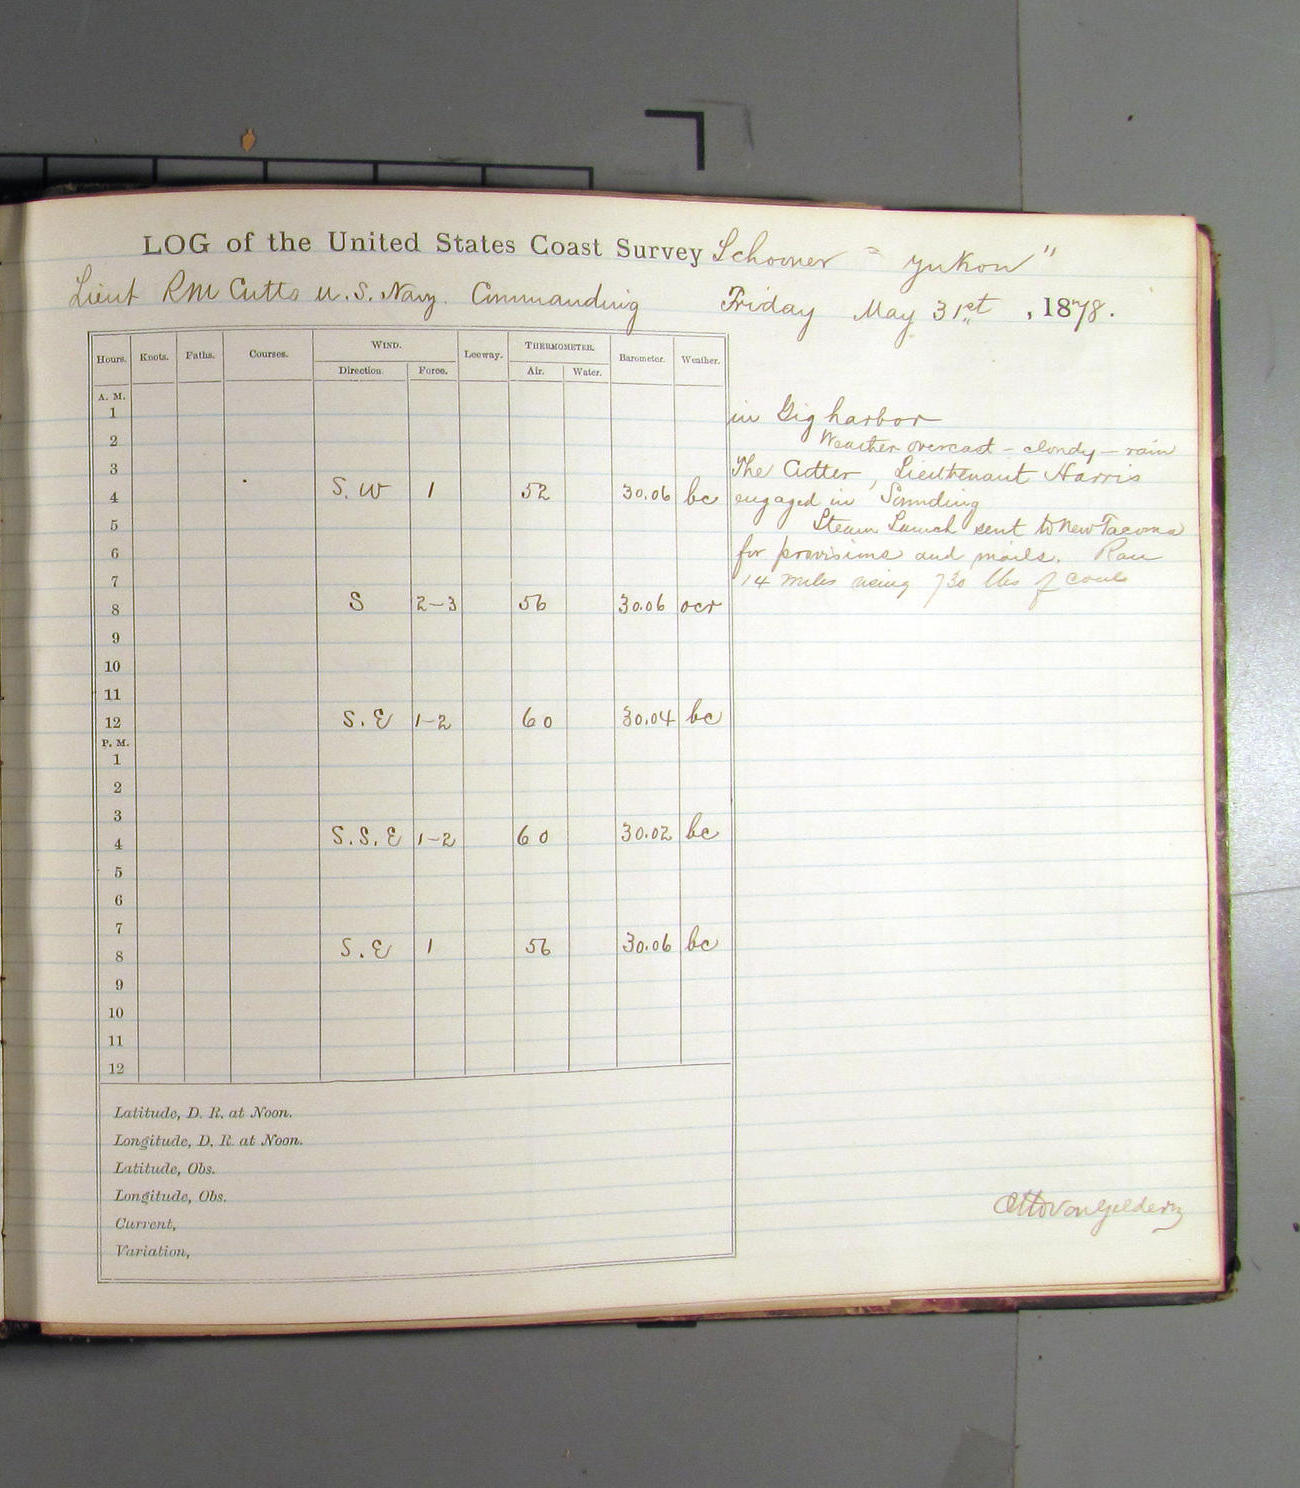 LOG of the United States Coast Survey Schooner "Yukon"
Lieut RM Cutts U.S. Navy. Commanding Friday May 31st, 1878.
WIND. THERMOMETER.
Hours. Knots. Faths. Courses. Direction. Force. Leeway. Air. Water. Barometer. Weather.
A. M.
1
2
3
4 S. W 1 52 30.06 bc
5
6
7
8 S 2-3 56 30.06 ocr
9
10
11
12 S. E 1-2 60 30.04 bc
P. M.
1
2
3
4 S. S. E 1-2 60 30.02 bc
5
6
7
8 S. E 1 56 30.06 bc
9
10
11
12
Latitude, D. R. at Noon.
Longitude, D. R. at Noon.
Latitude, Obs.
Longitude, Obs.
Current,
Variation,
in Gig harbor
Weather overcast - cloudy - rain
The Cutter, Lieuthenant Harris
engaged in Sounding
Steam Launch sent to New Tacoma
for provisions and mails. Ran
14 miles using 730 lbs of coal
Otto von Geldern